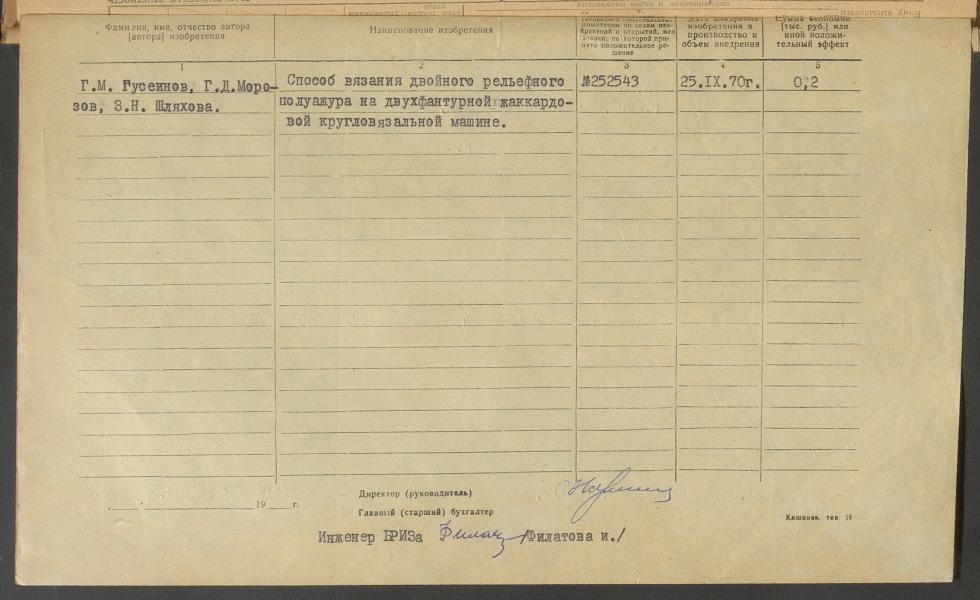 Фамилия, имя, отчество автора
[автора] изобретения
Наименование изобретения
Комитетом по делам изо-
бретений и открытий, или
заявки, по которой при-
нято положительное ре-
шение
Дата внедрения
изобретения в
производство и
объем внедрения
Сумма экономии
[тыс. руб.] или
иной положи-
тельный эффект
1
2
3
4
5
Г.М. Гусеинов, Г.Д.Моро-
зов, З.Н. Шляхова.
Способ вязания двойного рельефного
полуажура на двухфантурной жаккардо-
вой кругловязальной машине.
№252543
25.IX.70г.
0,2
19 г.
Директор (руководитель)
Главный (старший) бухгалтер
Кишинев, тип. 16
Инженер БРИЗа /Филатова и./